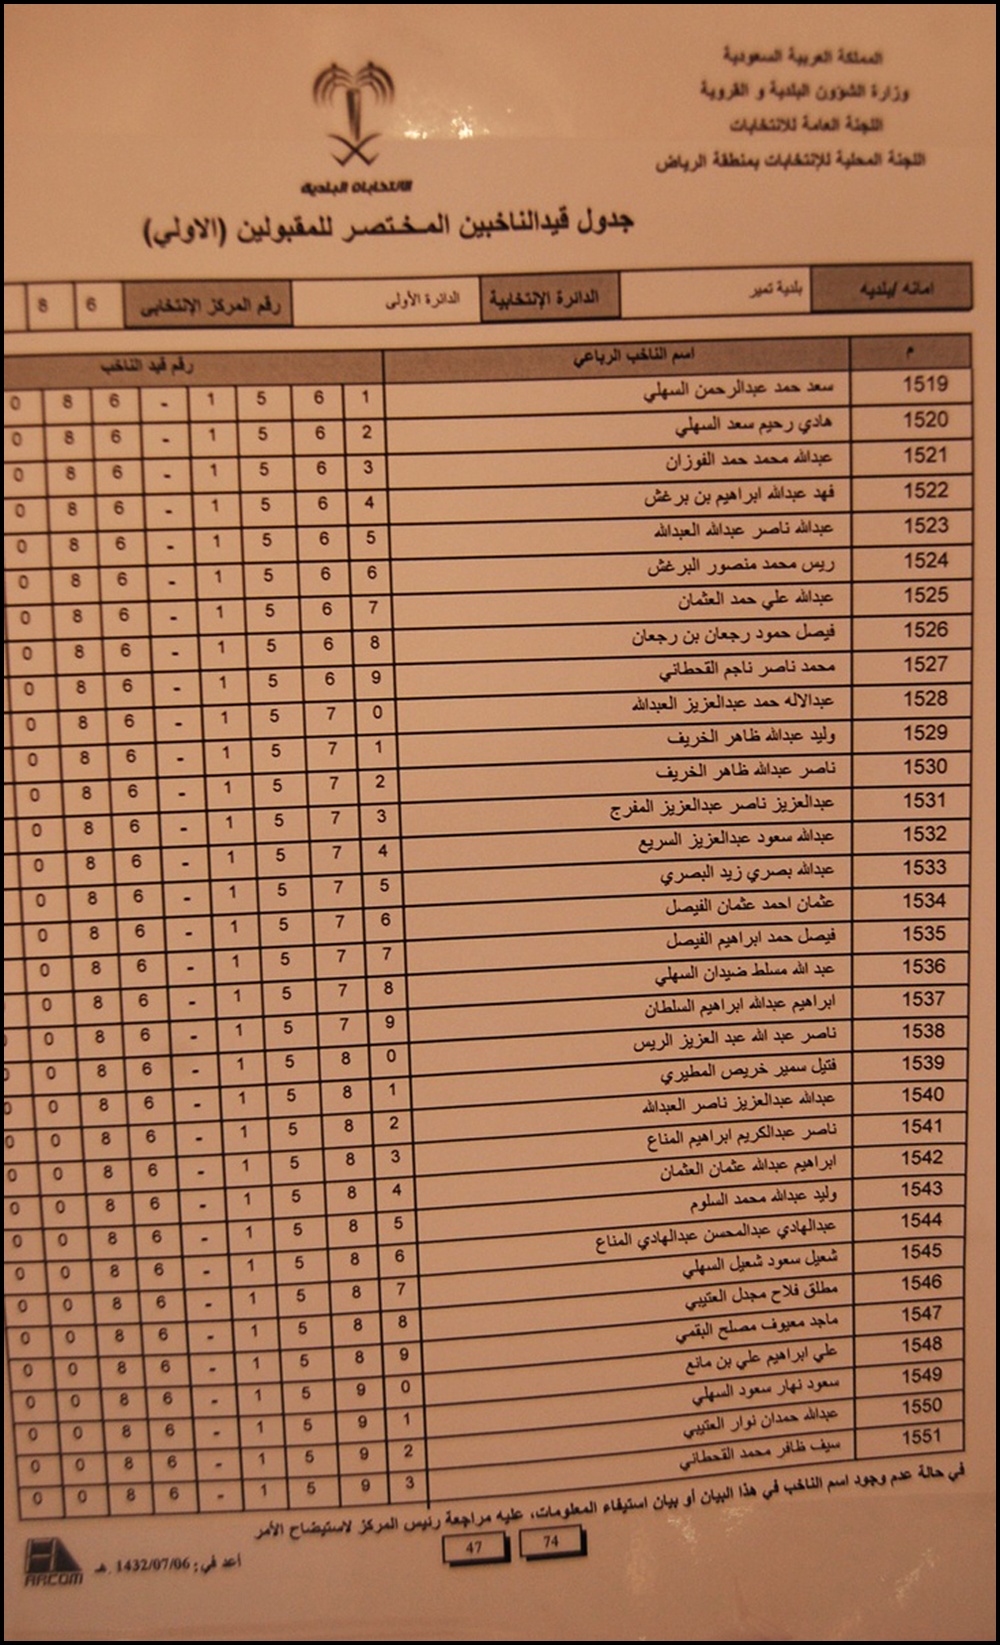 المملكة العربية السعودية
وزارة الشؤون البلدية و القروية
اللجنة العامة للانتخابات
اللجنة المحلية للإنتخابات بمنطقة الرياض
الانتخابات البلدية
جدول قيدالناخبين المختصر للمقبولين (الاولي)
امانه /بلديه بلدية تمير الدائرة الإنتخابية الدائرة الأولى رقم المركز الإنتخابى 6 8
م اسم الناخب الرباعي رقم قيد الناخب
1519 سعد حمد عبدالرحمن السهلي 1 6 5 1 - 6 8 0
1520 هادي رحيم سعد السهلي 2 6 5 1 - 6 8 0
1521 عبدالله محمد حمد الفوزان 3 6 5 1 - 6 8 0
1522 فهد عبدالله ابراهيم بن برغش 4 6 5 1 - 6 8 0
1523 عبدالله ناصر عبدالله العبدالله 5 6 5 1 - 6 8 0
1524 ريس محمد منصور البرغش 6 6 5 1 - 6 8 0
1525 عبدالله علي حمد العثمان 7 6 5 1 - 6 8 0
1526 فيصل حمود رجعان بن رجعان 8 6 5 1 - 6 8 0
1527 محمد ناصر ناجم القحطاني 9 6 5 1 - 6 8 0
1528 عبدالاله حمد عبدالعزيز العبدالله 0 7 5 1 - 6 8 0
1529 وليد عبدالله ظاهر الخريف 1 7 5 1 - 6 8 0
1530 ناصر عبدالله ظاهر الخريف 2 7 5 1 - 6 8 0
1531 عبدالعزيز ناصر عبدالعزيز المفرج 3 7 5 1 - 6 8 0
1532 عبدالله سعود عبدالعزيز السريع 4 7 5 1 - 6 8 0
1533 عبدالله بصري زيد البصري 5 7 5 1 - 6 8 0
1534 عثمان احمد عثمان الفيصل 6 7 5 1 - 6 8 0
1535 فيصل حمد ابراهيم الفيصل 7 7 5 1 - 6 8 0
1536 عبد الله مسلط ضيدان السهلي 8 7 5 1 - 6 8 0
1537 ابراهيم عبدالله ابراهيم السلطان 9 7 5 1 - 6 8 0 0
1538 ناصر عبد الله عبد العزيز الريس 0 8 5 1 - 6 8 0 0
1539 فتيل سمير خريص المطيري 1 8 5 1 - 6 8 0 0
1540 عبدالله عبدالعزيز ناصر العبدالله 2 8 5 1 - 6 8 0 0
1541 ناصر عبدالكريم ابراهيم المناع 3 8 5 1 - 6 8 0 0
1542 ابراهيم عبدالله عثمان العثمان 4 8 5 1 - 6 8 0 0
1543 وليد عبدالله محمد السلوم 5 8 5 1 - 6 8 0 0
1544 عبدالهادي عبدالمحسن عبدالهادي المناع 6 8 5 1 - 6 8 0 0
1545 شعيل سعود شعيل السهلي 7 8 5 1 - 6 8 0 0
1546 مطلق فلاح مجدل العتيبي 8 8 5 1 - 6 8 0 0
1547 ماجد معيوف مصلح البقمي 9 8 5 1 - 6 8 0 0
1548 علي ابراهيم علي بن مانع 0 9 5 1 - 6 8 0 0
1549 سعود نهار سعود السهلي 1 9 5 1 - 6 8 0 0
1550 عبدالله حمدان نوار العتيبي 2 9 5 1 - 6 8 0 0
1551 سيف ظافر محمد القحطاني 3 9 5 1 - 6 8 0 0
في حالة عدم وجود اسم الناخب في هذا البيان أو بيان استيفاء المعلومات، عليه مراجعة رئيس المركز لاستيضاح الأمر
74 47
أعد في: 1432/07/06 هـ
ARCOM